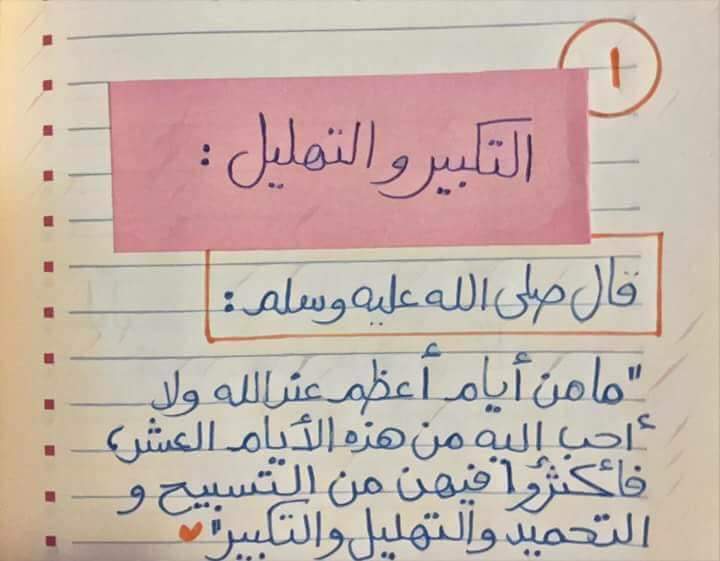 ١
التكبير و التهليل :
قال صلى الله عليه وسلم :
"ما من أيام أعظم عند الله ولا
أحب إليه من هذه الأيام العشر،
فأكثرُوا فيهن من التسبيح و
التحميد والتهليل والتكبير"